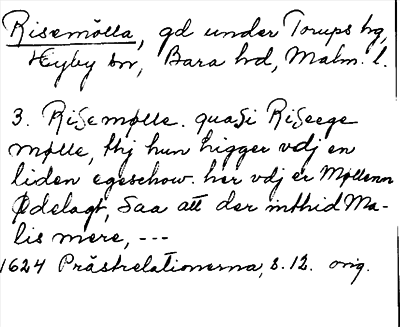 Risemölla, gd under Torups hg,
Hyby sn, Bara hd, Malm. l.
3. Risemølle. quasi Riseege
mølle, thj hun ligger vdj en
liden egeschow. her vdj er Møllenn
Ødelagt, Saa att der intthid Ma-
lis mere, ---
1624 Prästrelationerna, s. 12. orig.